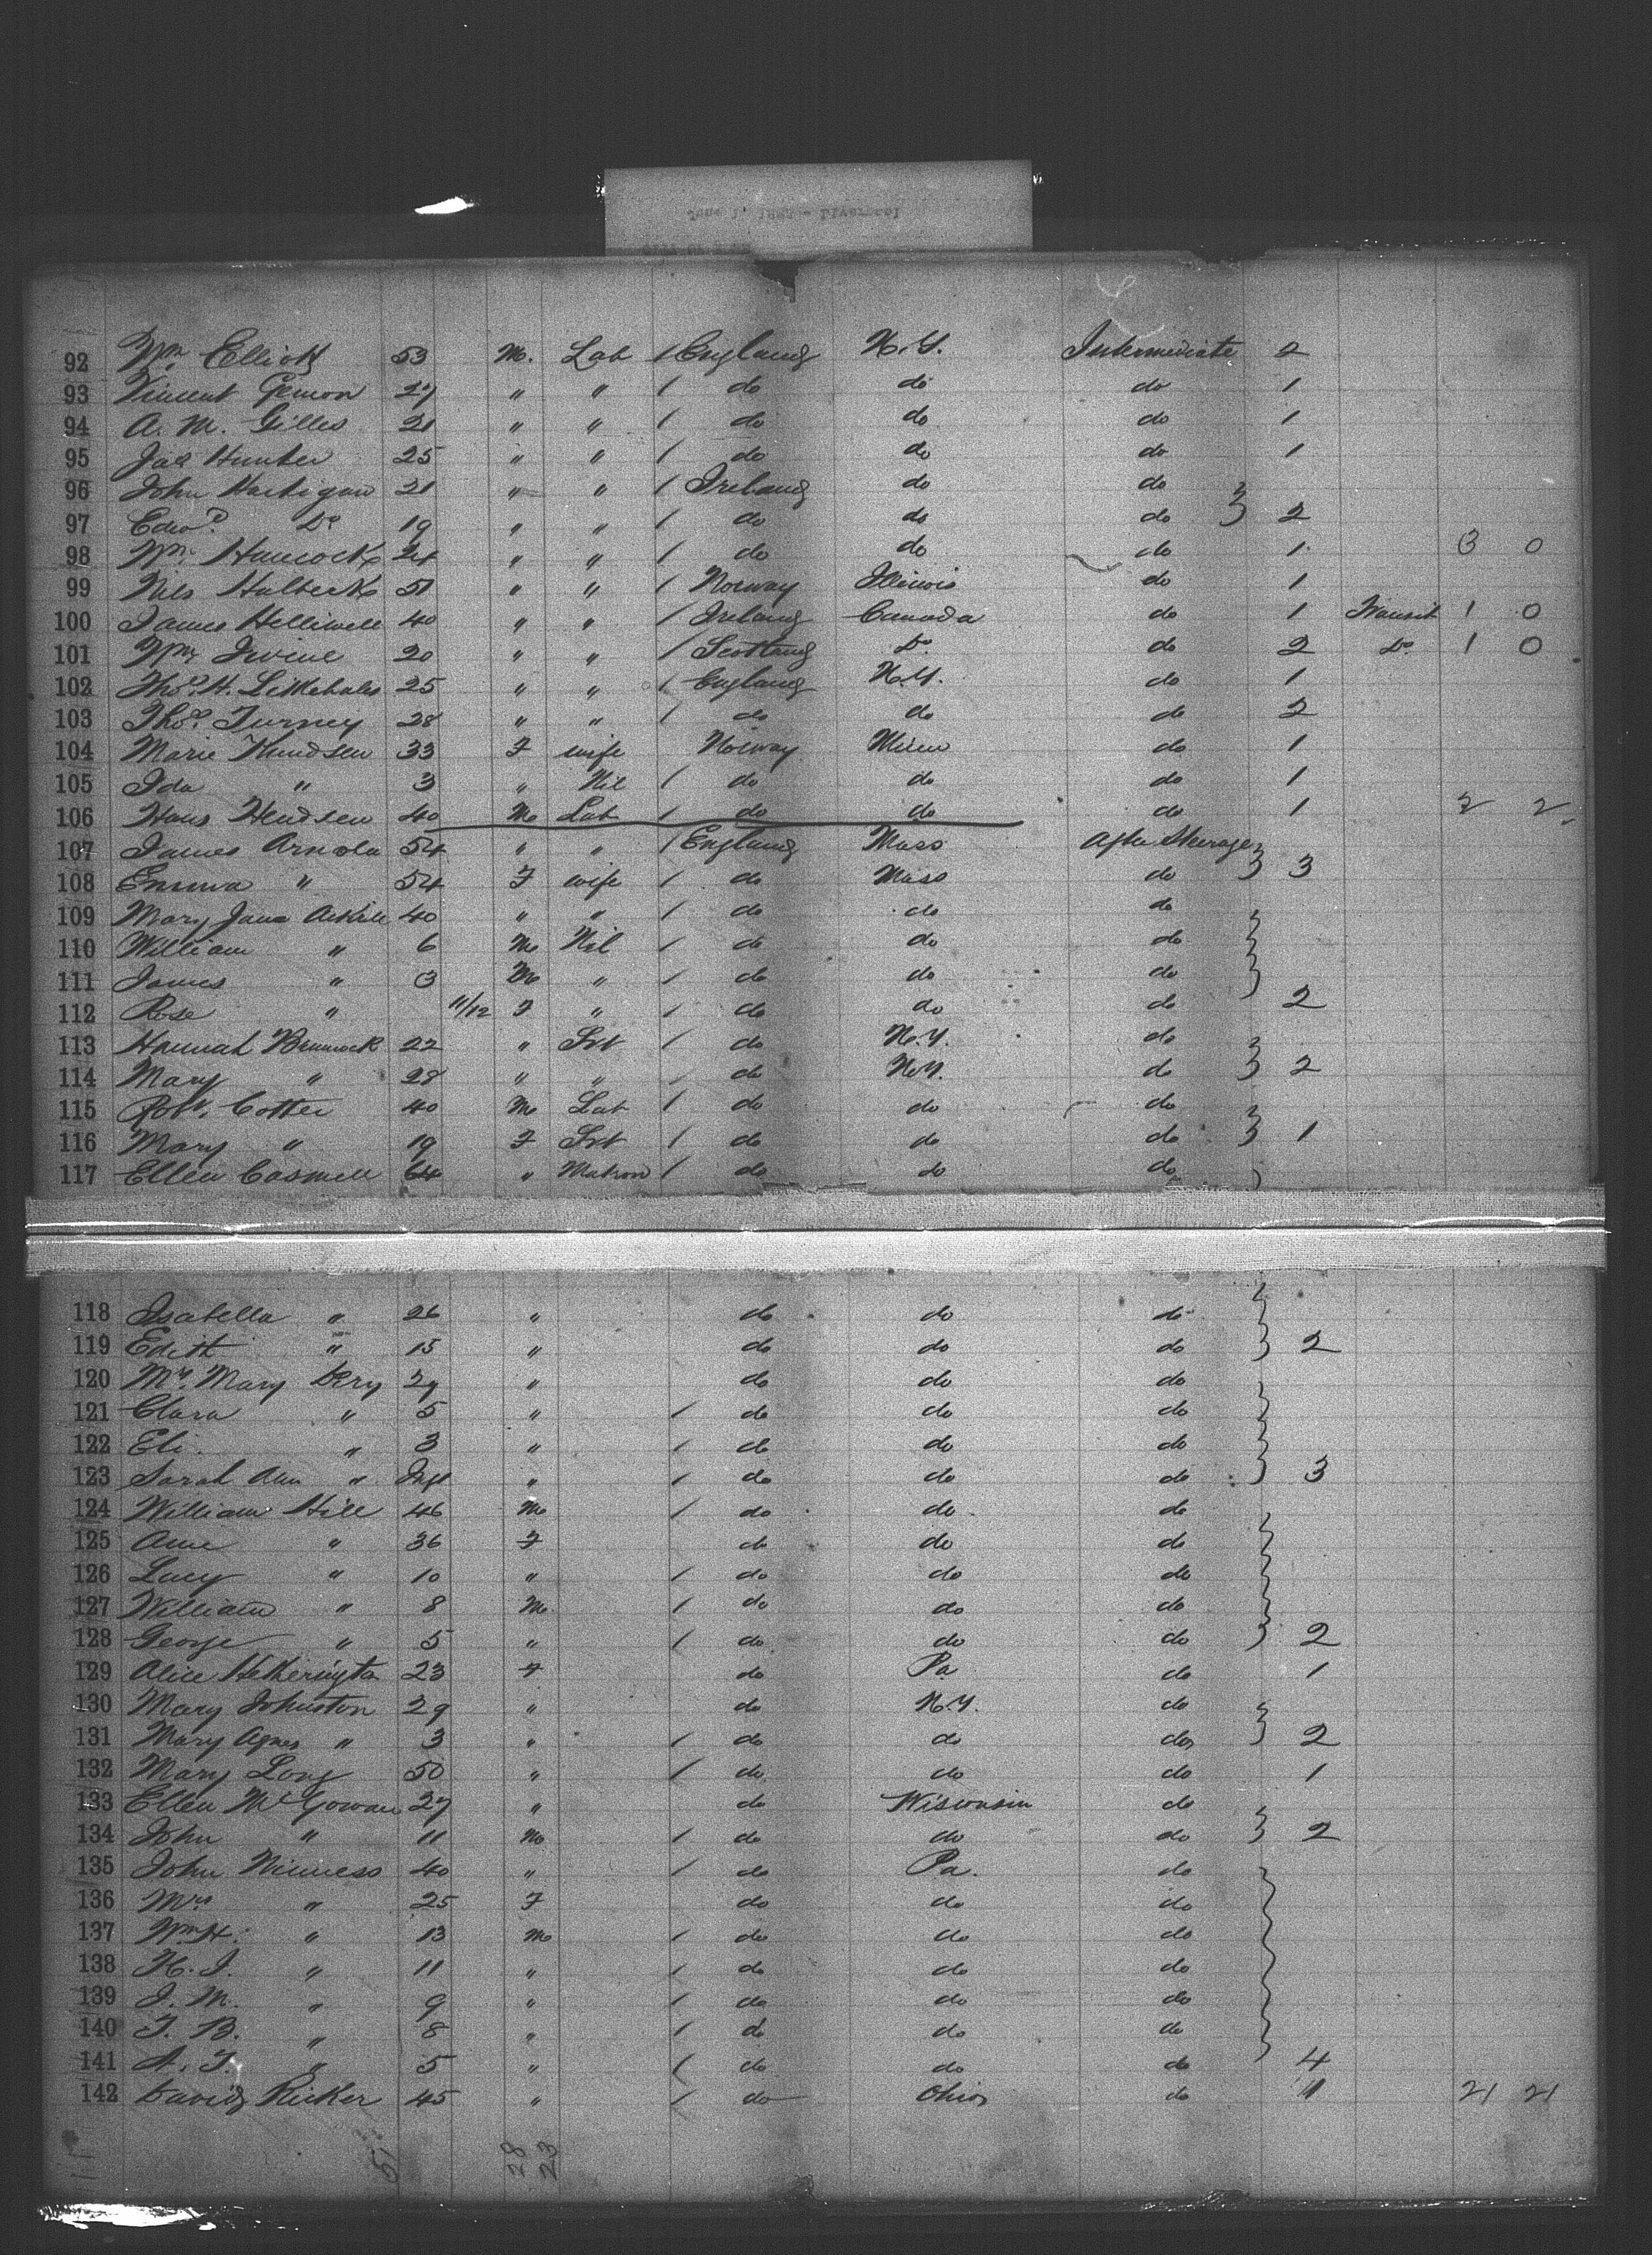 92 Wm. Elliott 53 M. Lab / England N.Y. Intermediate 2
93 Vincent Gernon 27 " " / do do do 1
94 A. M. Gilles 21 " " / do do do 1
95 Jas Hunter 25 " " / do do do 1
96 John Hartigan 21 " " / Ireland do do
97 Edwd. Do 19 " " / do do do 2
98 Wm. Hancock 24 " " / do do do 1 3 0
99 Nils Halbeck 51 " " / Norway Illinois do 1
100 James Helliwell 40 " " / Ireland Canada do 1 Transit 1 0
101 Wm Irvine 20 " " / Scotland Do do 2 Do 1 0
102 Thos. H. 25 " " / England N.Y. do 1
103 Thos. Turney 28 " " / do do do 2
104 Marie Knudsen 33 F wife Norway do 1
105 Ida " 3 " Nil / do do do 1
106 Hans 40 M Lab / do do do 1 2 2
107 James Arnold 54 " " / England Mass After Steerage
108 Emma " 54 F wife / do Mass do 3
109 Mary Jane 40 " " / do do do
110 William " 6 M Nil / do do do
111 James " 3 M " / do do do
112 Rose " 11/12 F " / do do do 2
113 Hannah 22 " Svt / do N.Y. do
114 Mary " 28 " " / do N.Y. do 2
115 Robt. Cotter 40 M Lab / do do do
116 Mary " 19 F Svt / do do do 1
117 Ellen 64 " Matron / do do do
118 Isabella " 26 " do do do
119 Edith " 15 " do do do 2
120 Mrs. Mary 29 " do do do
121 Clara " 5 " / do do do
122 Eli. " 3 " / do do do
123 Sarah Ann " Inft " / do do do 3
124 William Hill 46 M / do do do
125 Anne " 36 F do do do
126 Lucy " 10 " / do do do
127 William " 8 M / do do do
128 George " 5 " / do do do 2
129 Alice Hetherington 23 F do Pa do 1
130 Mary Johnston 29 " do N.Y. do
131 Mary Agnes " 3 " / do do do 2
132 Mary Long 50 " / do do do 1
133 Ellen McGowan 27 " do Wisconsin do
134 John " 11 M / do do do 2
135 John Winness 40 " / do Pa. do
136 Mrs " 25 F do do do
137 Wm H. " 13 M / do do do
138 H. J. " 11 " / do do do
139 J. M. " 9 " / do do do
140 T. B. " 8 " / do do do
141 A. J. " 5 " / do do do 4
142 David Ricker 45 " / do Ohio do 1 21 21
51 28 23